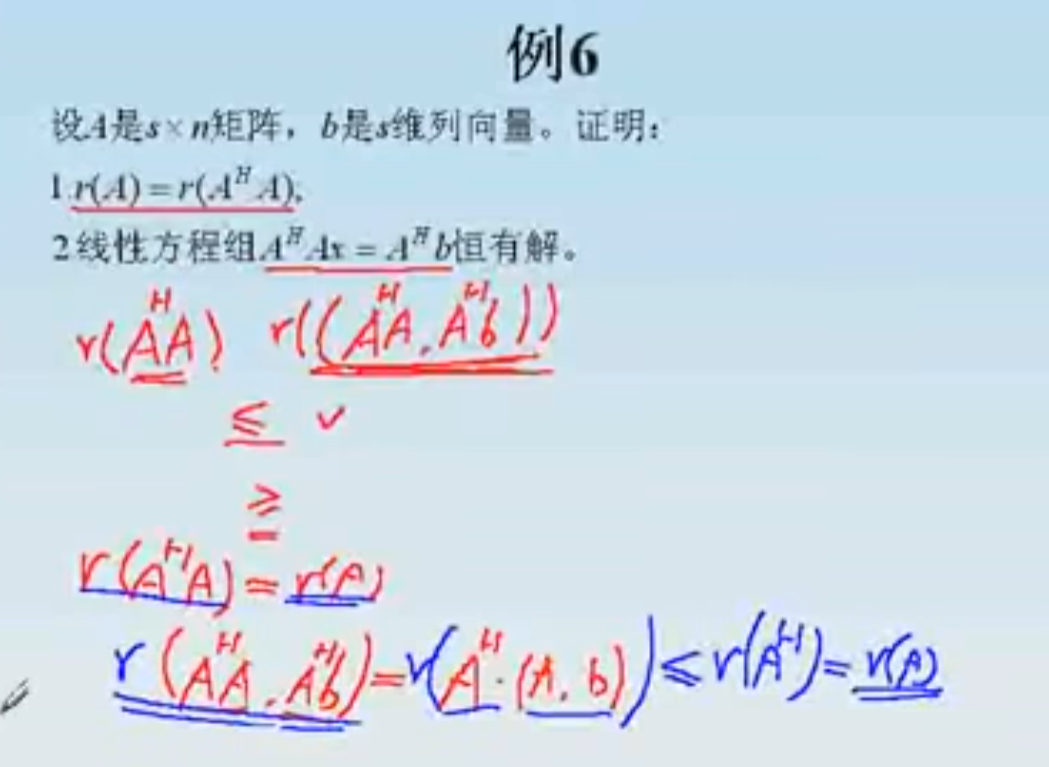 例6
设A是s×n矩阵，b是s维列向量。证明：
1.r(A)=r(A^H A),
2线性方程组A^H Ax = A^H b恒有解。
r(A^H A) r((A^H A, A^H b))
≤ ✓
≥
r(A^H A) = r(A)
r(A^H A, A^H b) = r(A^H·(A, b)) ≤ r(A^H) = r(A)